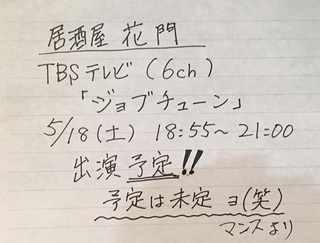 居酒屋 花門
TBSテレビ(6ch)
「ジョブチューン」
5/18(土) 18:55〜21:00
出演予定!!
予定は未定ョ(笑)
マンスより